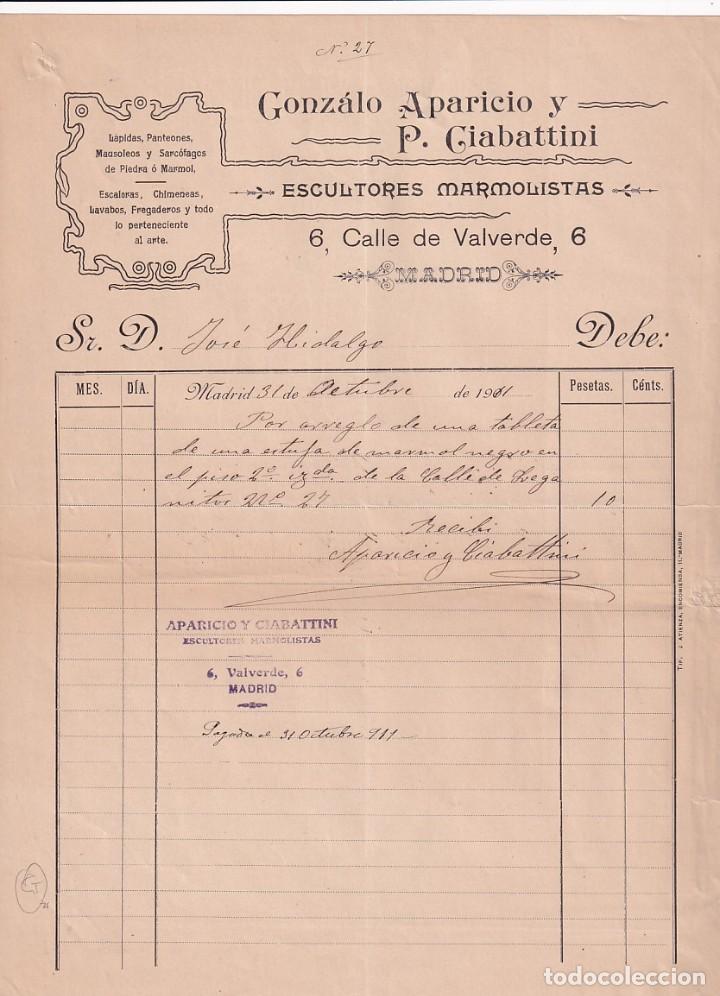 Nº 27
Gonzálo Aparicio y
P. Ciabattini
Lápidas, Panteones,
Mausoleos y Sarcófagos
de Piedra ó Marmol.
Escaleras, Chimeneas,
Lavabos, Fregaderos y todo
lo perteneciente
al arte.
ESCULTORES MARMOLISTAS
6, Calle de Valverde, 6
MADRID
Sr. D. José Hidalgo Debe:
MES. DÍA. Madrid 31 de Octubre de 1911 Pesetas. Cénts.
Por arreglo de una tableta
de una estufa de marmol negro en
el piso 2º izda. de la Calle de Lega
nitos Nº 27 10
Recibi
Aparicio y Ciabattini
APARICIO Y CIABATTINI
ESCULTORES MARMOLISTAS
6, Valverde, 6
MADRID
Pagada el 31 Octubre 911
TIP. J. ATIENZA, ENCOMIENDA, 11.-MADRID
todocoleccion
todocoleccion.net